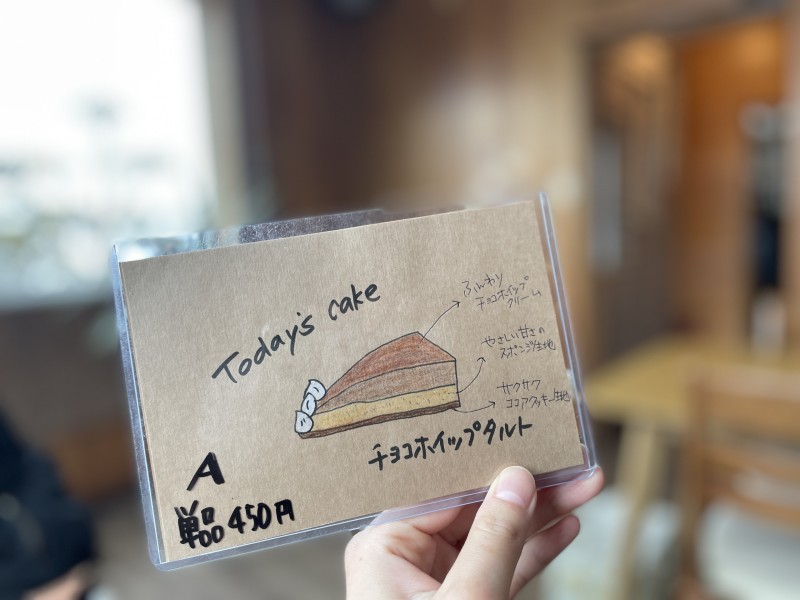 Today's cake
ふんわり
チョコホイップ
クリーム
やさしい甘さの
スポンジ生地
サクサク
ココアクッキー生地
チョコホイップタルト
A
単品450円